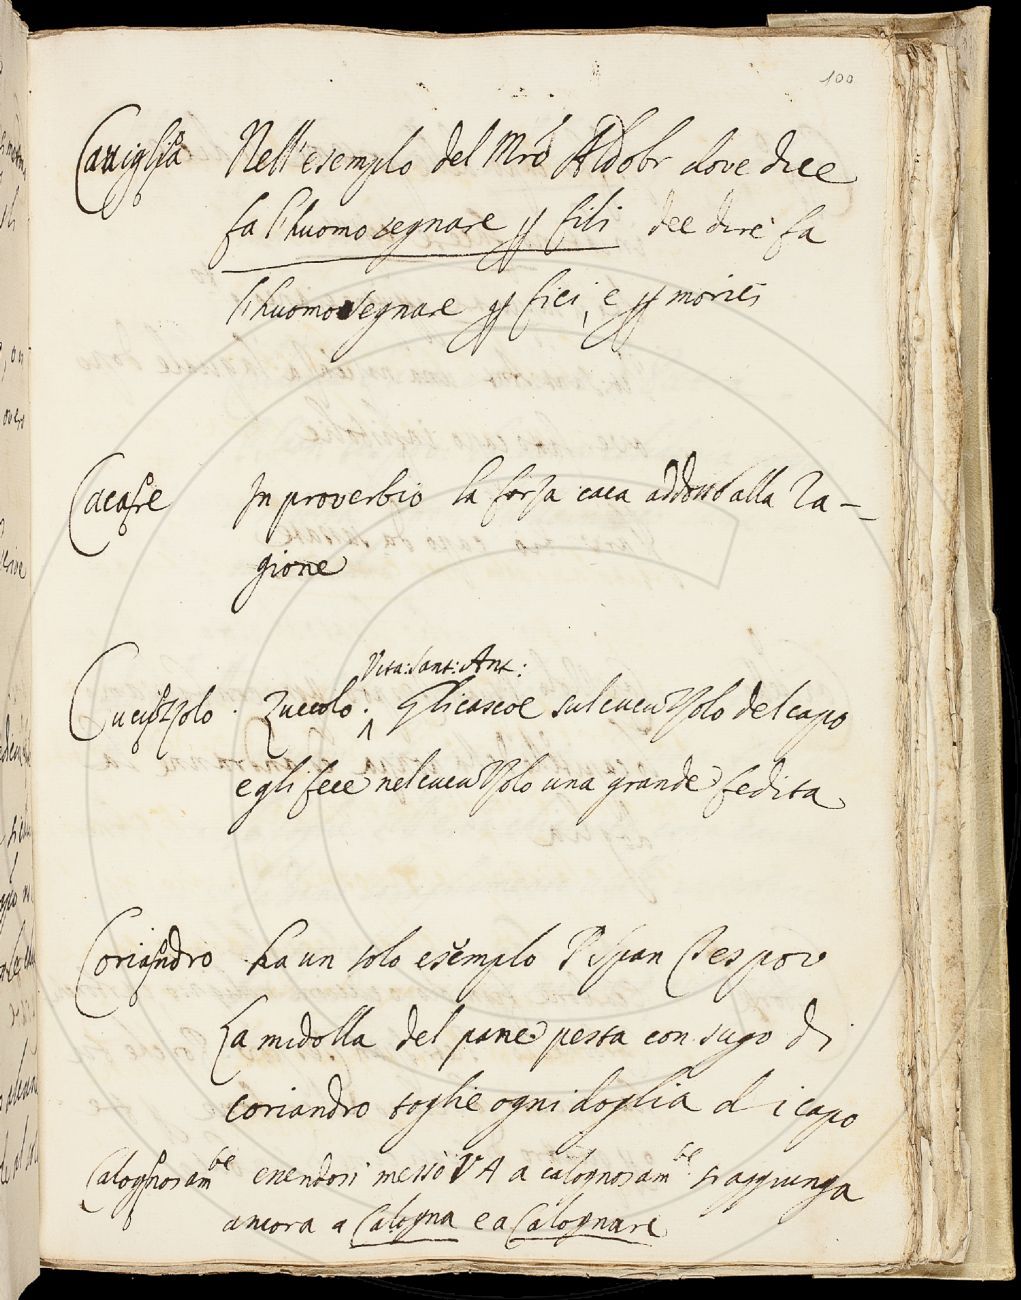 100
Caviglia Nell'esemplo del Mro Aldobr dove dice
fa l'huomo segnare p fili dee dire fa
l'huomo segnare p fici, e p morici
Cacare In proverbio la forza caca addosso alla Ra-
gione
Vita: Sant: Ant:
Cucuzzolo. Zuccolo. Gli cascoe sul cucuzzolo del capo
e gli fece nel cucuzzolo una grande fedita
Coriandro ha un solo esemplo P Ispan Tes pov
La midolla del pane pesta con sugo di
coriandro toglie ogni doglia di capo
Calognosamte essendosi messo VA a calognosamte si aggiunga
ancora a Calogna e a Calognare